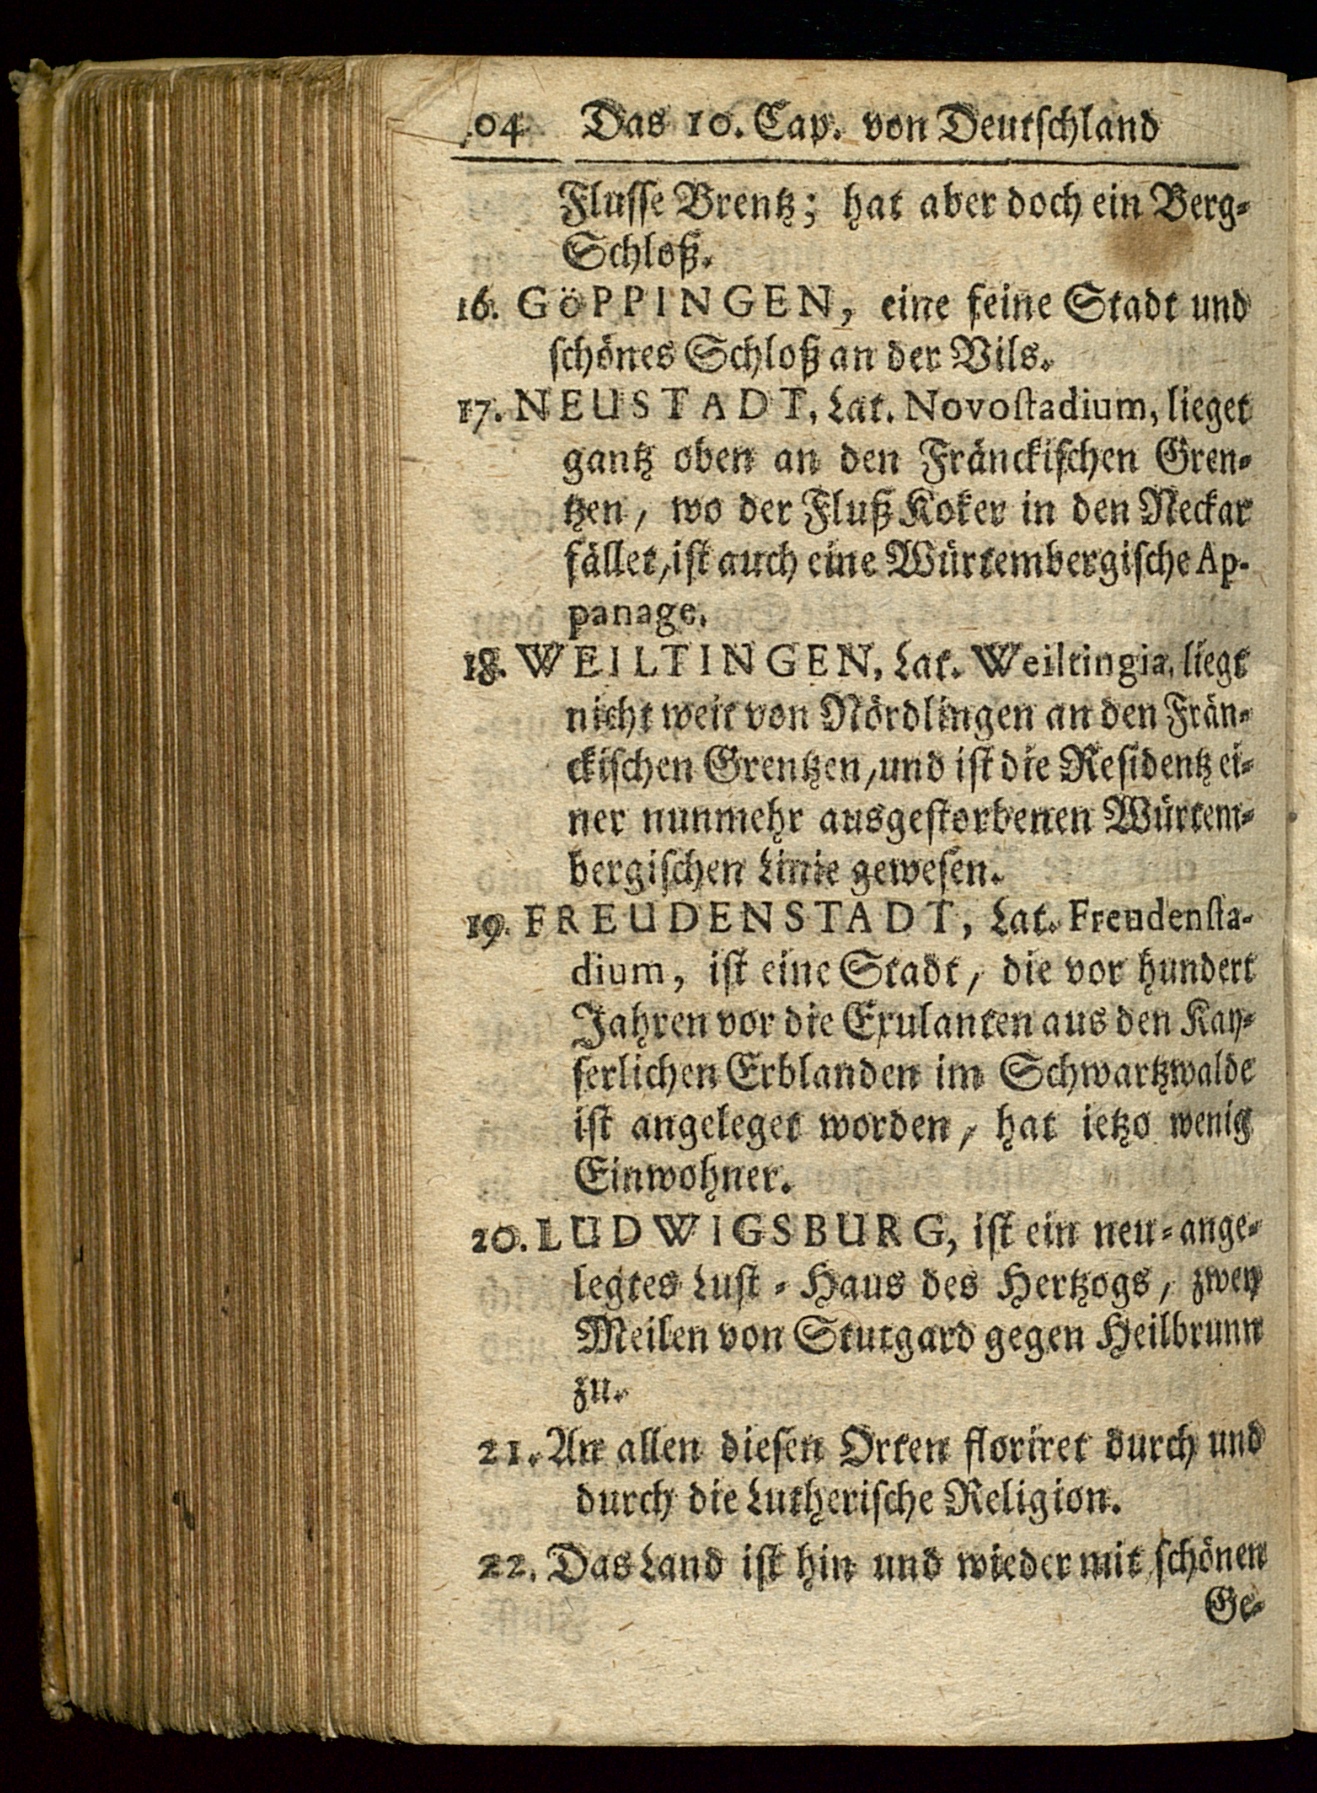 04 Das 10. Cap. von Deutschland
Flusse Brentz; hat aber doch ein Berg-
Schloß.
16. GöPPINGEN, eine feine Stadt und
schönes Schloß an der Vils.
17. NEUSTADT, Lat. Novostadium, lieget
gantz oben an den Fränckischen Gren-
tzen, wo der Fluß Koker in den Neckar
fället, ist auch eine Würtembergische Ap-
panage.
18. WEILTINGEN, Lat. Weiltingia, liegt
nicht weit von Nördlingen an den Frän-
ckischen Grentzen, und ist die Residentz ei-
ner nunmehr ausgestorbenen Würtem-
bergischen Linie gewesen.
19. FREUDENSTADT, Lat. Freudensta-
dium, ist eine Stadt, die vor hundert
Jahren vor die Exulanten aus den Kay-
serlichen Erblanden im Schwartzwalde
ist angeleget worden, hat ietzo wenig
Einwohner.
20. LUDWIGSBURG, ist ein neu-ange-
legtes Lust-Haus des Hertzogs, zwey
Meilen von Stutgard gegen Heilbrunn
zu.
21. An allen diesen Orten floriret durch und
durch die Lutherische Religion.
22. Das Land ist hin und wieder mit schönen
Ge-